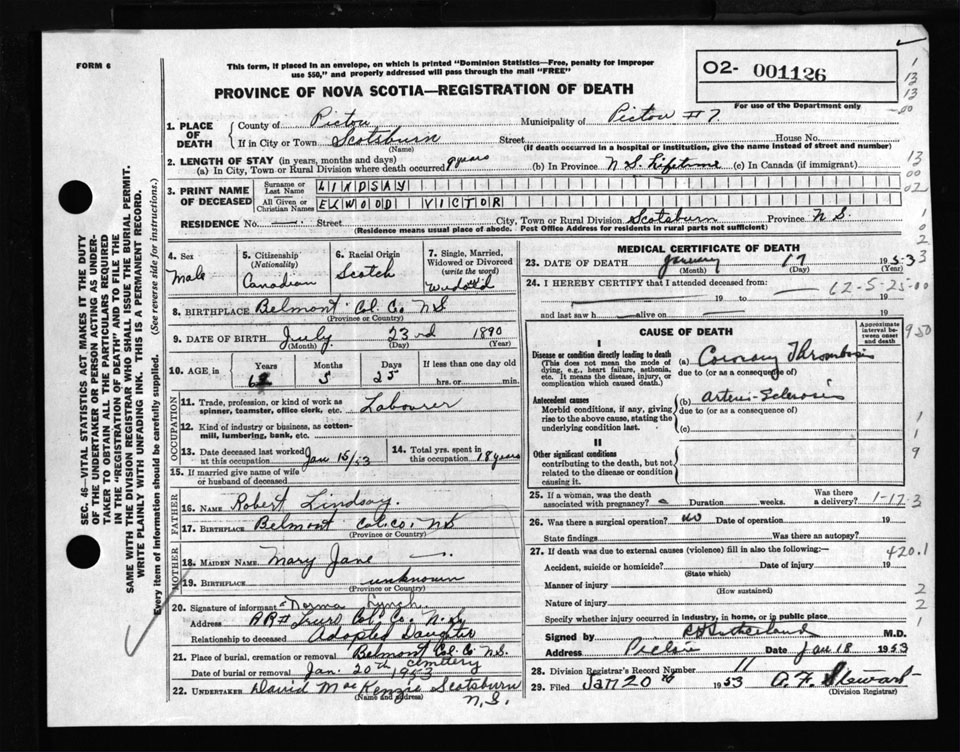 FORM 6
This form, if placed in an envelope, on which is printed "Dominion Statistics—Free, penalty for improper
use $50," and properly addressed will pass through the mail "FREE"
PROVINCE OF NOVA SCOTIA—REGISTRATION OF DEATH
02- 001126
For use of the Department only
1. PLACE OF DEATH
County of Pictou Municipality of Pictou #7
If in City or Town Scotsburn Street House No.
(Name) (If death occurred in a hospital or institution, give the name instead of street and number)
2. LENGTH OF STAY (in years, months and days)
(a) In City, Town or Rural Division where death occurred 9 years (b) In Province N S. Lifetime (c) In Canada (if immigrant)
3. PRINT NAME OF DECEASED
Surname or Last Name LINDSAY
All Given or Christian Names ELWOOD VICTOR
RESIDENCE No. — Street City, Town or Rural Division Scotsburn Province N S.
(Residence means usual place of abode. Post Office Address for residents in rural parts not sufficient)
4. Sex Male
5. Citizenship (Nationality) Canadian
6. Racial Origin Scotch
7. Single, Married, Widowed or Divorced (write the word) Widow'd
8. BIRTHPLACE Belmont Col. Co N S
(Province or Country)
9. DATE OF BIRTH July 23rd 1890
(Month) (Day) (Year)
10. AGE in Years 62 Months 5 Days 25 If less than one day
hrs. or min.
OCCUPATION
11. Trade, profession, or kind of work as
spinner, teamster, office clerk, etc. Labourer
12. Kind of industry or business, as cotton-
mill, lumbering, bank, etc.
13. Date deceased last worked
at this occupation Jan 15/53
14. Total yrs. spent in
this occupation 18 years
15. If married give name of wife
or husband of deceased
FATHER
16. NAME Robert Lindsay.
17. BIRTHPLACE Belmont Col. Co. N S
(Province or Country)
MOTHER
18. MAIDEN NAME Mary Jane —.
19. BIRTHPLACE unknown
(Province or Country)
20. Signature of informant Lynch.
Address RR# Truro Col. Co. N. S.
Relationship to deceased Adopted Daughter
21. Place of burial, cremation or removal Belmont Col. Co N.S.
cemetery
Date of burial or removal Jan. 20th 1953
22. UNDERTAKER David MacKenzie Scotsburn
(Name and address) N.S.
MEDICAL CERTIFICATE OF DEATH
23. DATE OF DEATH January 17 1953
(Month) (Day) (Year)
24. I HEREBY CERTIFY that I attended deceased from:
62-5-25-00
19 to 19
and last saw h alive on 19
CAUSE OF DEATH
Approximate interval between onset and death
I
Disease or condition directly leading to death
(This does not mean the mode of
dying, e.g., heart failure, asthenia,
etc. It means the disease, injury, or
complication which caused death.)
(a) Coronary Thrombosis
due to (or as a consequence of)
Antecedent causes
Morbid conditions, if any, giving
rise to the above cause, stating the
underlying condition last.
(b) Arterio-Sclerosis
due to (or as a consequence of)
(c)
II
Other significant conditions
contributing to the death, but not
related to the disease or condition
causing it.
25. If a woman, was the death
associated with pregnancy? Duration weeks. Was there
a delivery? 1-17-3
26. Was there a surgical operation? no Date of operation 19
State findings Was there an autopsy?
27. If death was due to external causes (violence) fill in also the following:—
420.1
Accident, suicide or homicide? Date of injury 19
(State which)
Manner of injury
(How sustained)
Nature of injury
Specify whether injury occurred in industry, in home, or in public place
Signed by Sutherland M.D.
Address Pictou Date Jan 18 1953
28. Division Registrar's Record Number 11
29. Filed Jan 20th 1953 A. F. Stewart
(Division Registrar)
SEC. 46—VITAL STATISTICS ACT MAKES IT THE DUTY
OF THE UNDERTAKER OR PERSON ACTING AS UNDER-
TAKER TO OBTAIN ALL THE PARTICULARS REQUIRED
IN THE "REGISTRATION OF DEATH" AND TO FILE THE
SAME WITH THE DIVISION REGISTRAR WHO SHALL ISSUE THE BURIAL PERMIT.
WRITE PLAINLY WITH UNFADING INK. THIS IS A PERMANENT RECORD.
Every item of information should be carefully supplied. (See reverse side for instructions.)